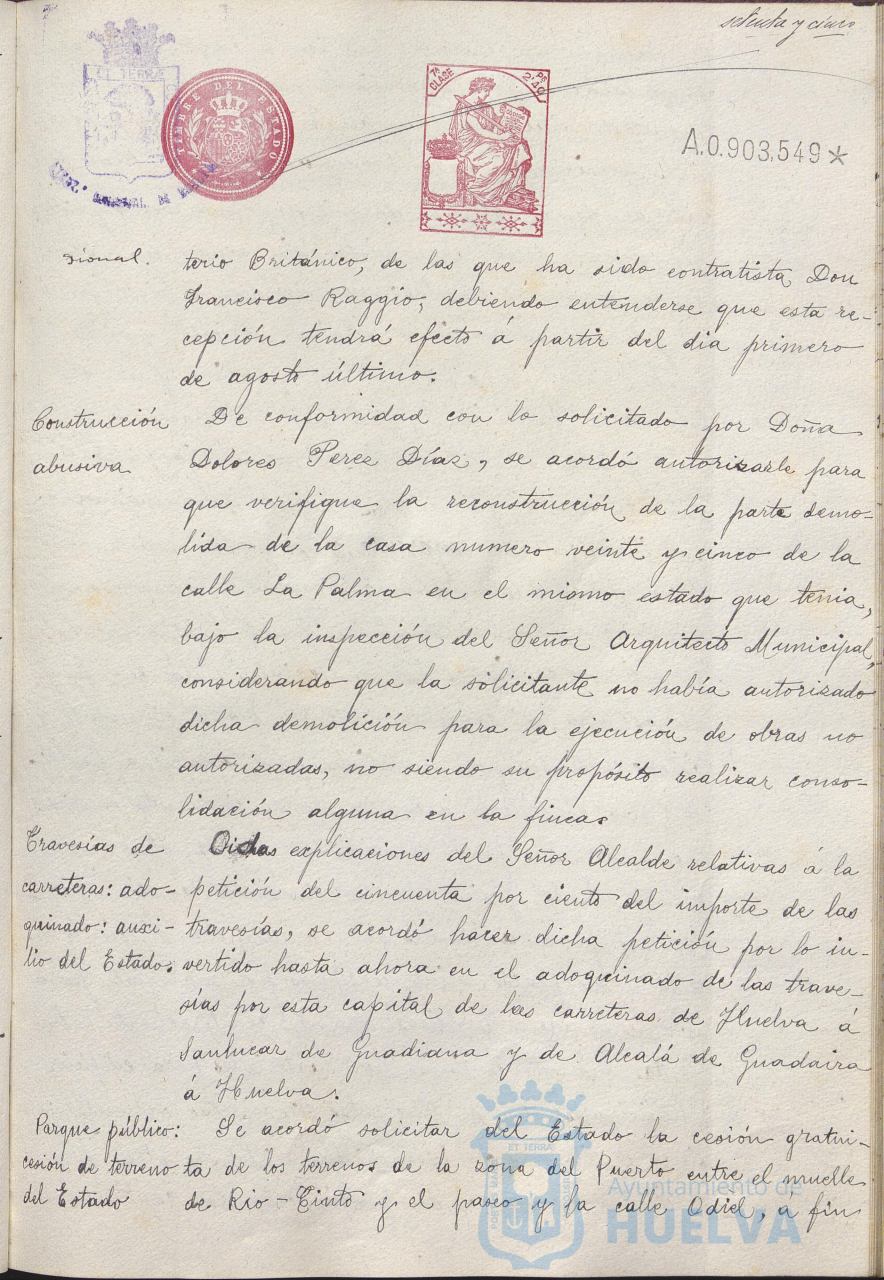 setenta y cinco
EL TERRÆ
TIMBRE DEL ESTADO
7ª CLASE
2'40 PS
A.0.903,549*
sional.
terio Británico, de las que ha sido contratista Don
Francisco Raggio, debiendo entenderse que esta re-
cepción tendrá efecto á partir del dia primero
de agosto último.
Construcción
abusiva
De conformidad con lo solicitado por Doña
Dolores Perez Díaz, se acordó autorizarle para
que verifique la reconstrucción de la parte demo-
lida de la casa numero veinte y cinco de la
calle La Palma en el mismo estado que tenia,
bajo la inspección del Señor Arquitecto Municipal,
considerando que la solicitante no había autorizado
dicha demolición para la ejecución de obras no
autorizadas, no siendo su propósito realizar conso-
lidación alguna en la finca.
Travesías de
carreteras: ado-
quinado: auxi-
lio del Estado.
Oidas explicaciones del Señor Alcalde relativas á la
petición del cincuenta por ciento del importe de las
travesías, se acordó hacer dicha petición por lo in-
vertido hasta ahora en el adoquinado de las trave-
sías por esta capital de las carreteras de Huelva á
Sanlucar de Guadiana y de Alcalá de Guadaira
á Huelva.
Parque público:
cesión de terreno
del Estado
Se acordó solicitar del Estado la cesión gratui-
ta de los terrenos de la zona del Puerto entre el muelle
de Rio-Tinto y el paseo y la calle Odiel, a fin
ET TERRÆ
Ayuntamiento de
HUELVA